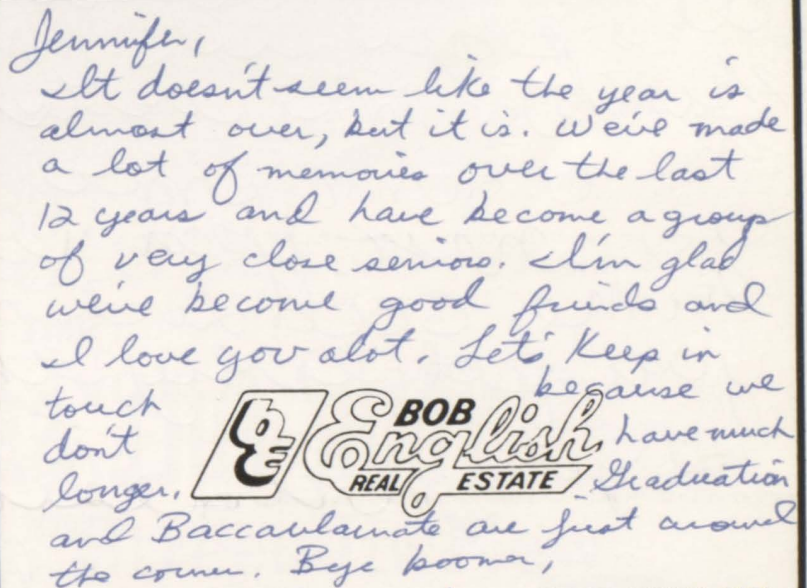 Jennifer,
It doesn't seem like the year is
almost over, but it is. We've made
a lot of memories over the last
12 years and have become a group
of very close seniors. I'm glad
we've become good friends and
I love you alot. Let's Keep in
touch because we
don't have much
longer. Graduation
bE BOB English REAL ESTATE
and Baccaulaurate are just around
the corner. Bye boomer,